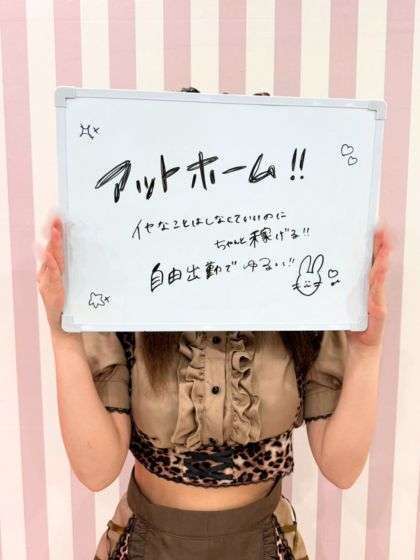 アットホーム!!
イヤなことはしなくていいのに
ちゃんと稼げる!!
自由出勤でゆるい!!